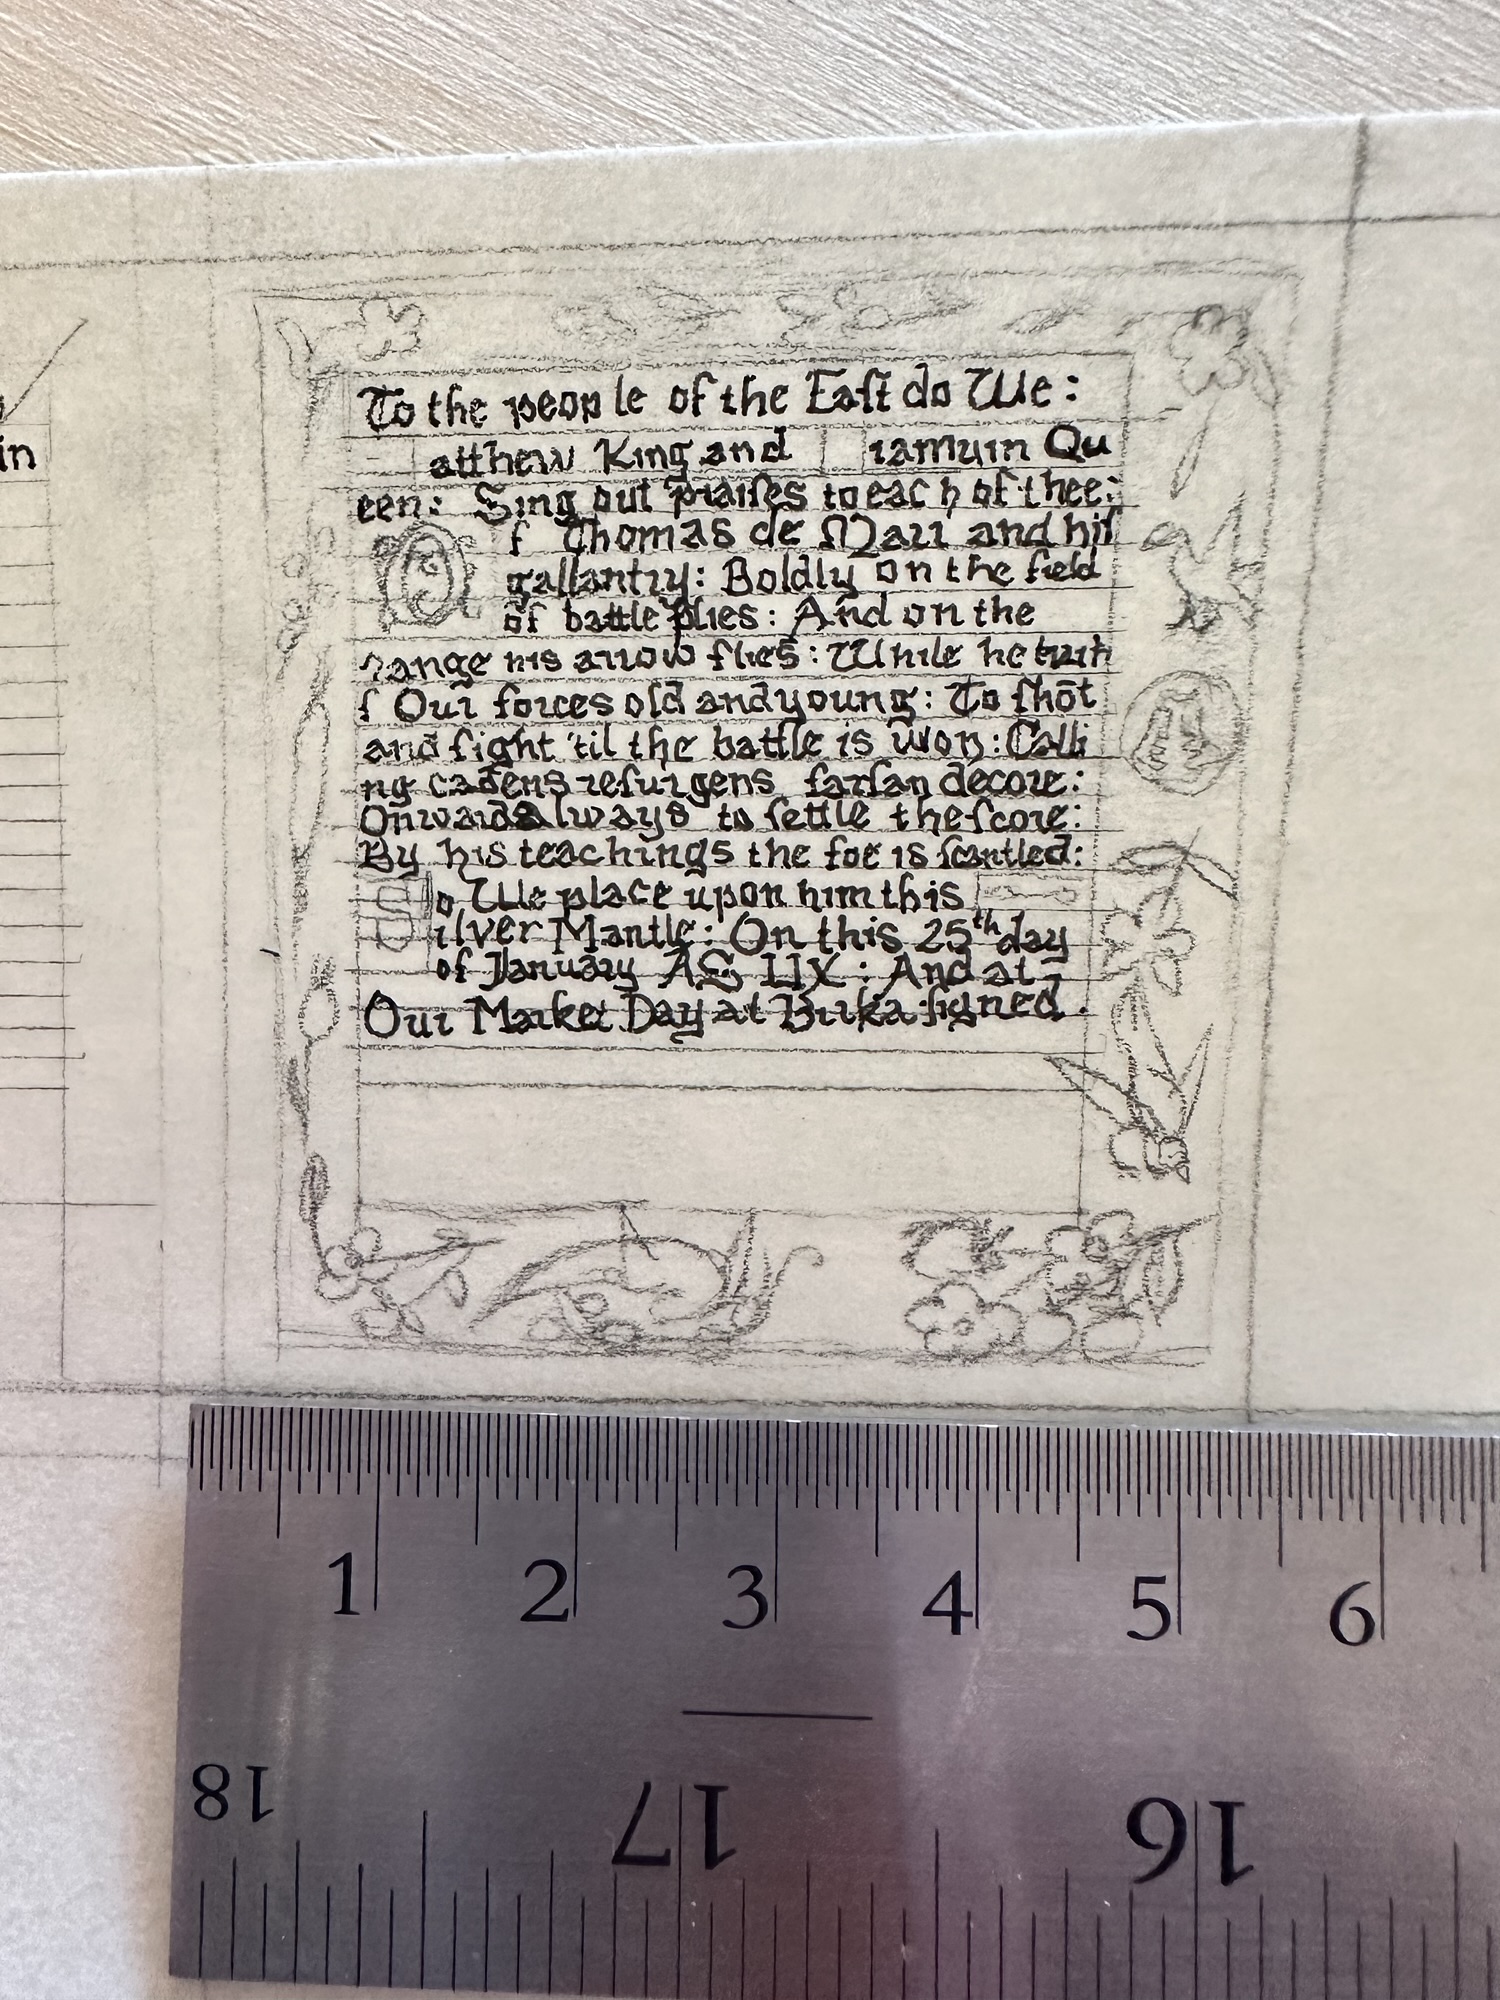 in
To the people of the Eaſt do We:
atthew King and iamuin Qu
een: Sing out praiſes to each of thee:
Of Thomas de Marr and hiſ
gallantry: Boldly on the field
of battle plies: And on the
range his arrow flies: While he
ſ Our forces old and young: To ſhōt
and fight 'til the battle is won: Calli
ng cadens reſurgens farſan decore:
Onwards Always to ſettle the ſcore:
By his teachings the foe is ſcantled:
So We place upon him this
Silver Mantle: On this 25th day
of January AS LIX: And at
Our Market Day at Birka ſigned.
1 2 3 4 5 6
18 17 16